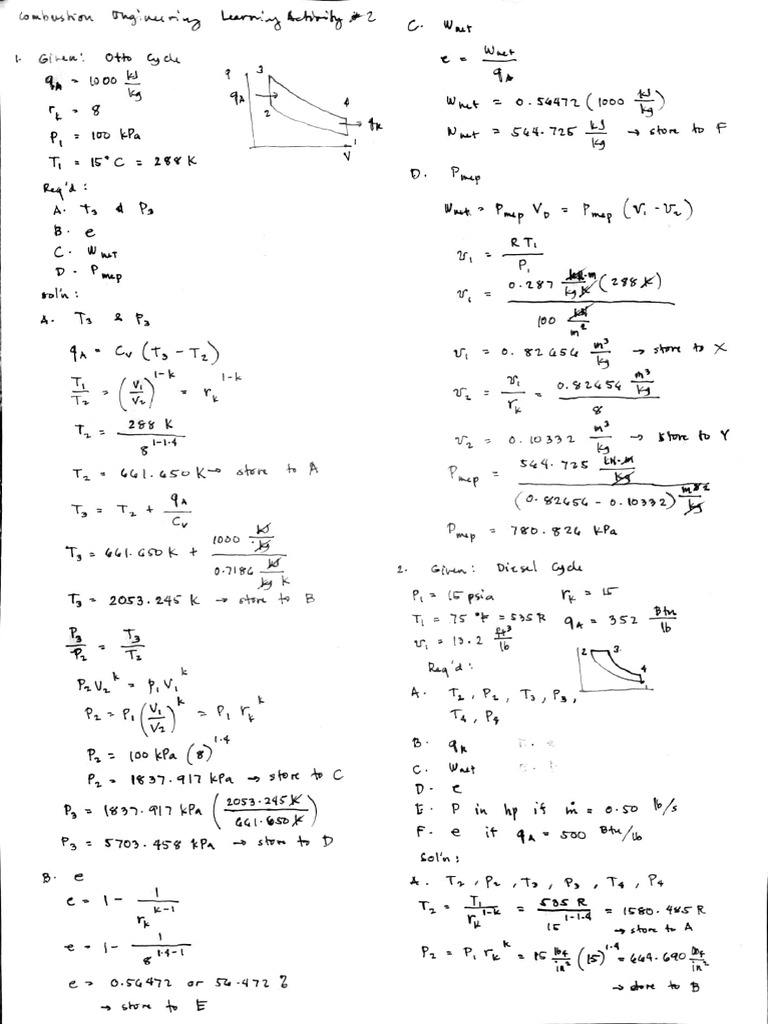 Combustion Engineering Learning Activity #2
1. Given: Otto Cycle
qA = 1000 kJ/kg
rk = 8
P1 = 100 kPa
T1 = 15°C = 288 K
P 3 qA 2 4 qR 1 V
Req'd:
A. T3 & P3
B. e
C. Wnet
D. Pmep
Sol'n:
A. T3 & P3
qA = Cv (T3 - T2)
T1/T2 = (V1/V2)^1-k = rk^1-k
T2 = 288 K / 8^1-1.4
T2 = 661.650 K → store to A
T3 = T2 + qA/Cv
T3 = 661.650 K + 1000 kJ/kg / 0.7186 kJ/kg K
T3 = 2053.245 K → store to B
P3/P2 = T3/T2
P2V2^k = P1V1^k
P2 = P1 (V1/V2)^k = P1 rk^k
P2 = 100 kPa (8)^1.4
P2 = 1837.917 kPa → store to C
P3 = 1837.917 kPa (2053.245 K / 661.650 K)
P3 = 5703.458 kPa → store to D
B. e
e = 1 - 1/rk^k-1
e = 1 - 1/8^1.4-1
e = 0.56472 or 56.472 %
→ store to E
C. Wnet
e = Wnet/qA
Wnet = 0.56472 (1000 kJ/kg)
Wnet = 564.725 kJ/kg → store to F
D. Pmep
Wnet = Pmep VD = Pmep (v1 - v2)
v1 = RT1/P1
v1 = 0.287 kN·m/kg K (288 K) / 100 kN/m²
v1 = 0.82656 m³/kg → store to X
v2 = v1/rk = 0.82656 m³/kg / 8
v2 = 0.10332 m³/kg → store to Y
Pmep = 564.725 kN·m/kg / (0.82656 - 0.10332) m³/kg
Pmep = 780.826 kPa
2. Given: Diesel Cycle
P1 = 15 psia rk = 15
T1 = 75 °F = 535 R qA = 352 Btu/lb
v1 = 13.2 ft³/lb
2 3 4 1
Req'd:
A. T2, P2, T3, P3,
T4, P4
B. qR
C. Wnet
D. e
E. P in hp if ṁ = 0.50 lb/s
F. e if qA = 500 Btu/lb
Sol'n:
A. T2, P2, T3, P3, T4, P4
T2 = T1/rk^1-k = 535 R/15^1-1.4 = 1580.485 R
→ store to A
P2 = P1 rk^k = 15 lbf/in² (15)^1.4 = 664.690 lbf/in²
→ store to B